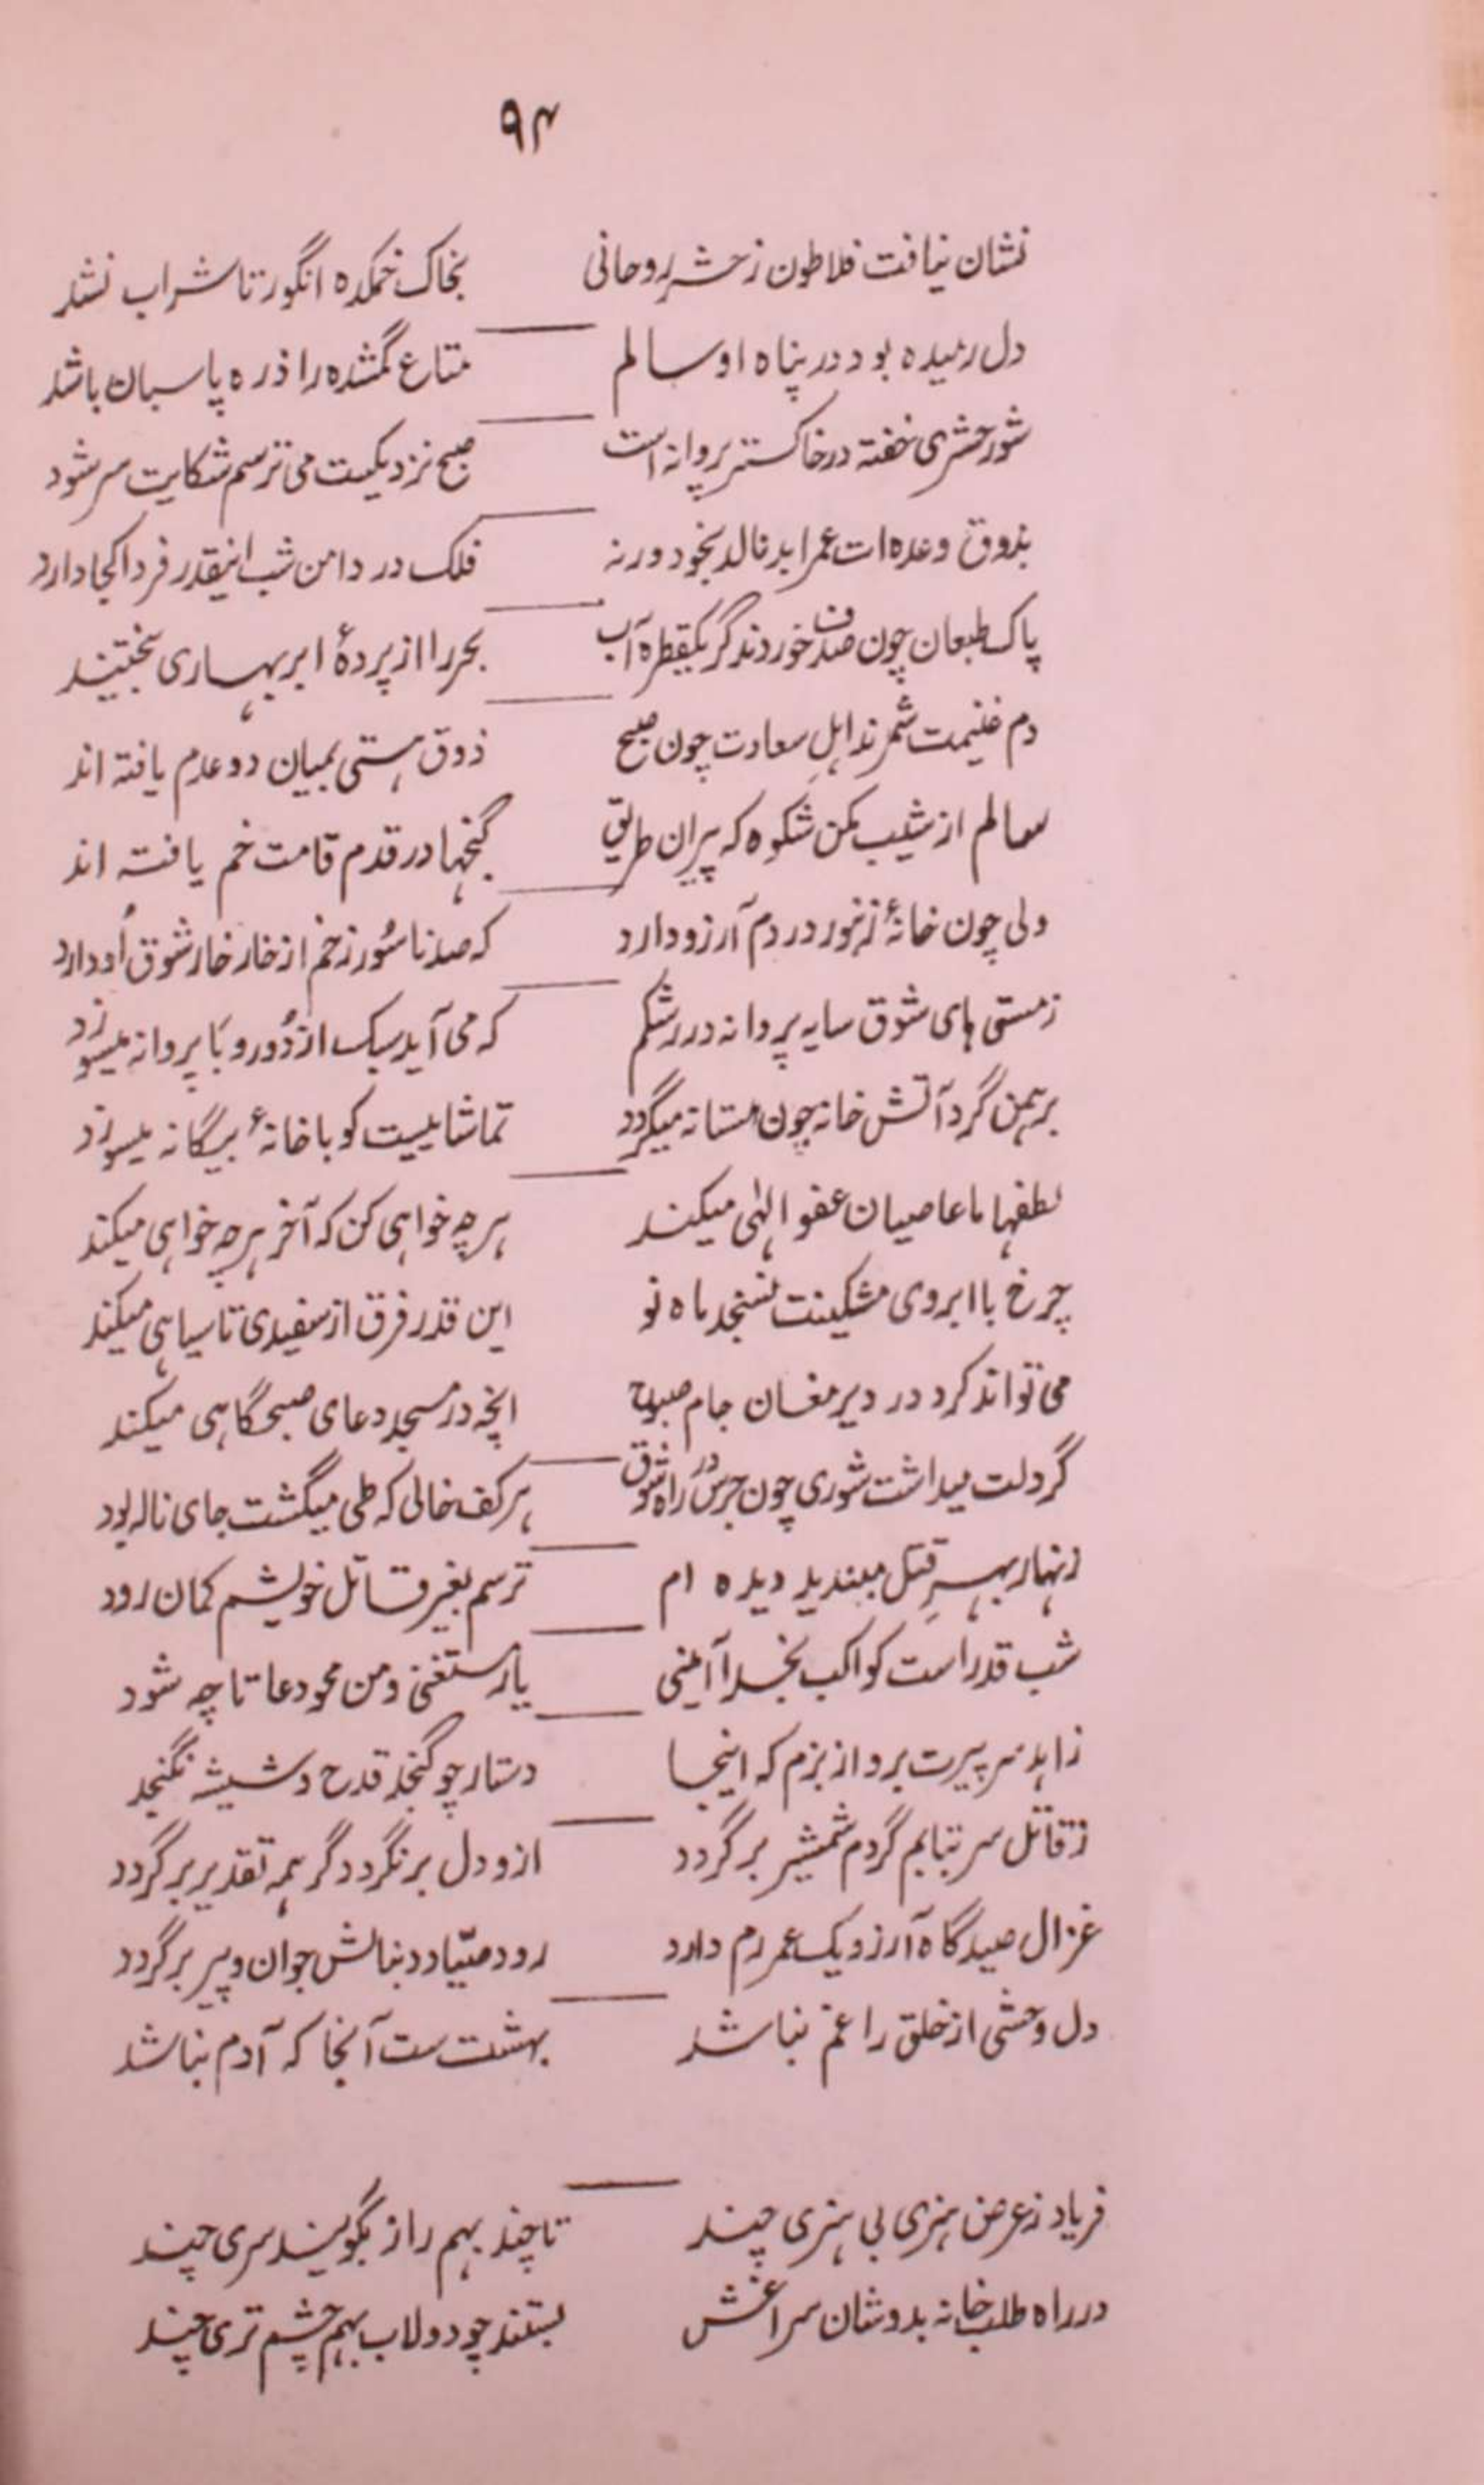 ۹۴
نشان نیافت فلاطون ز حشر روحانی بخاک خمکده انگور تا شراب نشد
دل رمیده بود در پناه او سالم متاع گمشده را ذره پاسبان باشد
شور حشری خفته در خاکستر پروانه است صبح نزدیکیست می ترسم شکایت سر شود
بذوق وعده ات عمر ابد نالد بخود ورنه فلک در دامن شب اینقدر فردا کجا دارد
پاک طبعان چون صدف خوردند گر یکقطره آب بحر را از پردهٔ ابر بهاری بختیند
دم غنیمت شمرند اهلِ سعادت چون صبح ذوق هستی بمیان دو عدم یافته اند
سالم از شیب مکن شکوه که پیران طریق گنجها در قدم قامت خم یافته اند
ولی چون خانهٔ زنبور در دم آرزو دارد که صد ناسُور زخم از خار خار شوق اُو دارد
ز مستی های شوق سایه پروانه در رشکم که می آید سبک از دُور و بَا پروانه میسوزد
برهمن گرد آتش خانه چون مستانه میگردد تماشاییست کو با خانهٔ بیگانه میسوزد
لطفها با عاصیان عفو الهٰی میکند هر چه خواهی کن که آخر هر چه خواهی میکند
چرخ با ابروی مشکینت نسنجد ماه نو این قدر فرق از سفیدی تا سیاهی میکند
می تواند کرد در دیر مغان جام صبوح انچه در مسجد دعای صبحگاهی میکند
گر دلت میداشت شوری چون جرس در راه شوق هر کف خالی که طی میگشت جای ناله بود
زنهار بهرِ قتل مبندید دیده ام ترسم بغیر قاتل خویشم گمان رود
شب قدر است کواکب بخدا آمینی یار مستغنی و من محو دعا تا چه شود
زاهد سر پیرت برو از بزم که اینجا دستار چو گنجد قدح و شیشه نگنجد
ز قاتل سر نتابم گر دم شمشیر برگردد ازو دل برنگردد گر همه تقدیر برگردد
غزال صیدگاه آرزو یک عمر رم دارد رود صیّاد دنبالش جوان و پیر برگردد
دل وحشی از خلق را غم نباشد بهشت ست آنجا که آدم نباشد
فریاد ز عرض هنری بی هنری چند تا چند بهم راز بگویند سری چند
در راه طلب خانه بدوشان سراغش بستند چو دولاب بهم چشم تری چند